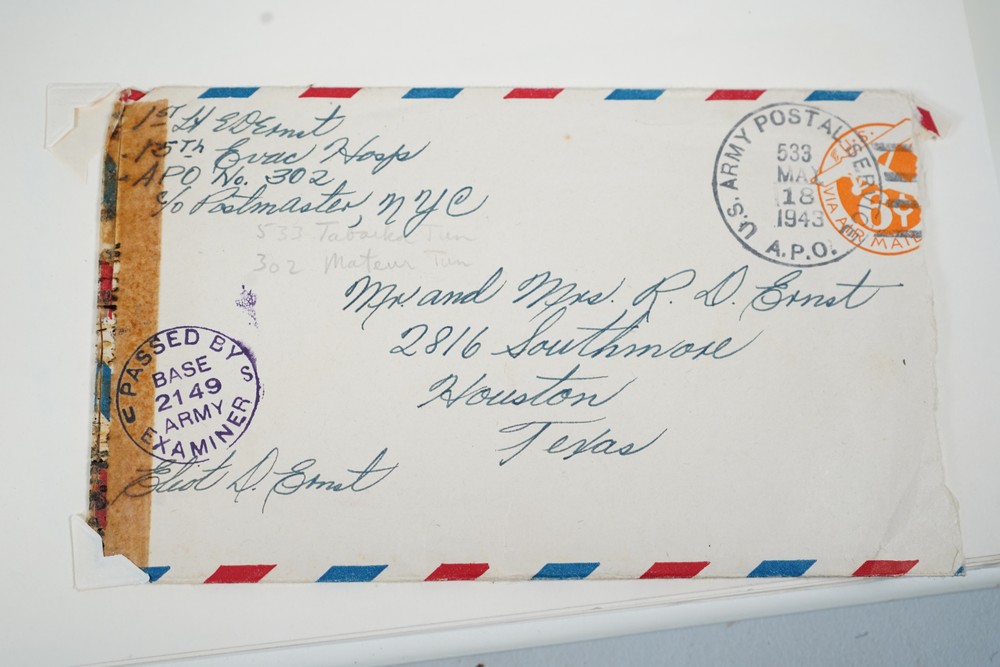 1st Lt E D Ernst
15th Evac Hosp
APO No. 302
c/o Postmaster, NYC
533 Tabarka Tun
302 Mateur Tun
U.S. ARMY POSTAL SERVICE
533
MAY
18
1943
A.P.O.
VIA AIR MAIL
Mr. and Mrs. R. D. Ernst
2816 Southmore
Houston
Texas
PASSED BY
BASE
2149
ARMY
EXAMINER
U S
Eliot D. Ernst